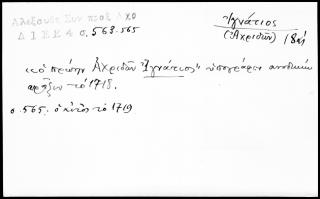 Αλεξούδη Συν προξ Αχο
Δ Ι Ε Ε 4 σ. 563.565
Ἰγνάτιος
(Ἀχριδῶν) 18ον
«ὁ πρώην Ἀχριδῶν Ἰγνάτιος» ὑπογράφει συνοδικὴν
πρᾶξιν τὸ 1718.
σ. 565. ὁ αὐτὸς τὸ 1719